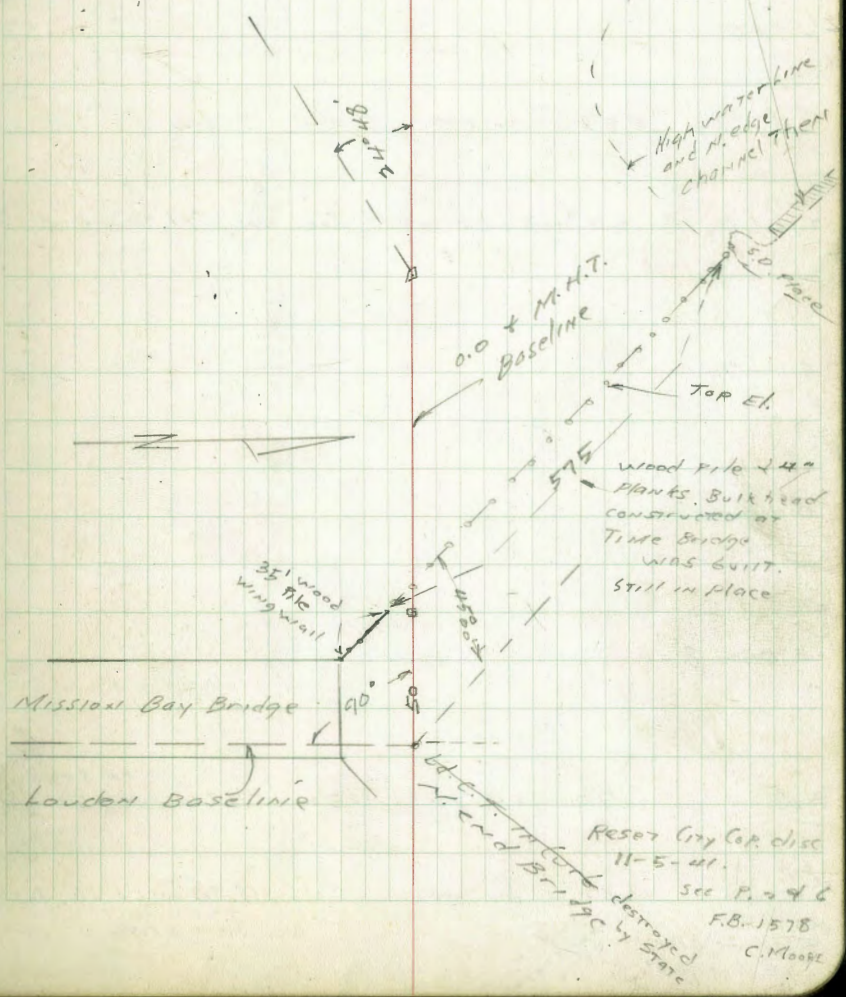 24°48'
High water Line
and N. edge
channel Then
S.D. Place
0.0 + M.H.T.
Baseline
Top El.
575
Wood Pile & 4"
Planks. Bulkhead
constructed at
Time Bridge
was built.
Still in place
35' wood
Pile
wing wall
45°00'
N
Mission Bay Bridge
90°
50
Loudon Baseline
in curb destroyed
N. end Bridge by State
Reset City Cop. disc
11-5-41.
See P. 6
F.B. 1578
C. Moore